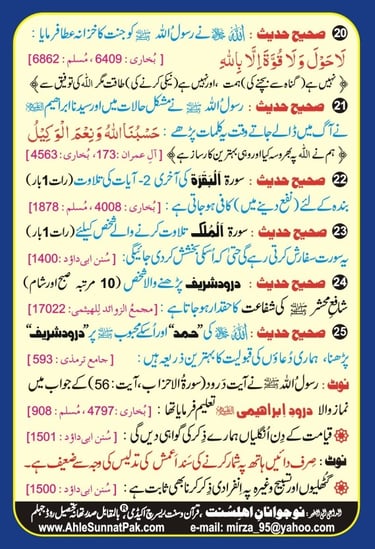 20 صحیح حدیث : اللہ ﷻ نے رسولُ اللہ ﷺ کو جنت کا خزانہ عطا فرمایا :
لَا حَوْلَ وَلَا قُوَّةَ اِلَّا بِاللّٰهِ [ بُخاری : 6409 ، مُسلم : 6862 ]
﴿ نہیں ہے (گناہ سے بچنے کی) ہمت ، اور نہیں ہے (نیکی کرنے کی) طاقت مگر اللہ کی توفیق سے ﴾
21 صحیح حدیث : رسولُ اللہ ﷺ نے مشکل حالات میں اور سیدنا ابراہیم
نے آگ میں ڈالے جاتے وقت یہ کلمات پڑھے : حَسْبُنَا اللّٰهُ وَنِعْمَ الْوَكِيْلُ
﴿ ہم نے اللہ پہ بھروسہ کیا اور وہی بہترین کارساز ہے ﴾ [ آلِ عمران : 173، بخاری : 4563 ]
22 صحیح حدیث : سورۃ اَلْبَقَرَة کی آخری 2- آیات کی تلاوت (رات 1 بار)
بندہ کے لئے (نفع دینے میں) کافی ہو جاتی ہے : [ بُخاری : 4008 ، مُسلم : 1878 ]
23 صحیح حدیث : سورۃ اَلْمُلْك تلاوت کرنے والے شخص کیلئے (رات 1 بار)
یہ سورت سفارش کرتی رہے گی حتی کہ اُسکی بخشش کر دی جائیگی : [ سُنن ابی داؤد : 1400 ]
24 صحیح حدیث : درود شریف پڑھنے والا شخص (10 مرتبہ صبح اور شام)
شافعِ محشر ﷺ کی شفاعت کا حقدار ہو جاتا ہے : [ مجمعُ الزوائد للهیثمی : 17022 ]
25 صحیح حدیث : اللہ ﷻ کی ”حمد“ اور اُسکے محبوب ﷺ پر ”درود شریف“
پڑھنا ، ہماری دُعاؤں کی قبولیت کا بہترین ذریعہ ہیں : [ جامع ترمذی : 593 ]
نوٹ : رسولُ اللہ ﷺ نے آیتِ درود (سورۃ الاحزاب ، آیت : 56) کے جواب میں
نماز والا درودِ اِبراھیمی تعلیم فرمایا تھا : [ بُخاری : 4797، مُسلم : 908 ]
قیامت کے دِن اُنگلیاں ہمارے ذِکر کی گواہی دیں گی : [ سُنن ابی داؤد : 1501 ]
نوٹ : صِرف دائیں ہاتھ پہ شمار کرنے کی سند اعمش کی تدلیس کی وجہ سے ضعیف ہے ۔
گٹھلیوں اور تسبیح وغیرہ پہ اِنفرادی ذِکر کرنا بھی ثابت ہے : [ سُنن ابی داؤد : 1500 ]
نوجوانانِ اھلسنت ، قرآن و سنت ریسرچ اکیڈمی بالمقابل صدر تھانہ تحصیل روڈ جہلم
www.AhleSunnatPak.com e-mail: mirza_95@yahoo.com